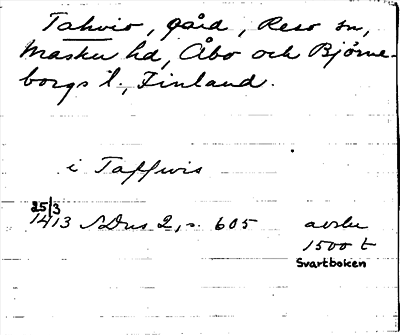 Tahvio, gård, Reso sn,
Masku hd, Åbo och Björne-
borgs l., Finland.
i Taffwis
25/3
1413 SDns 2, s. 605 avskr
1500 t
Svartboken